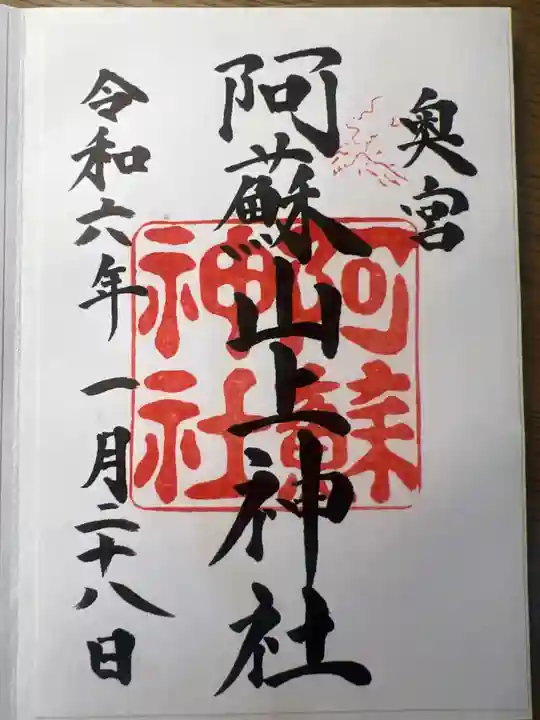 奥宮
阿蘇山上神社
阿蘇
神社
令和六年 一月二十八日